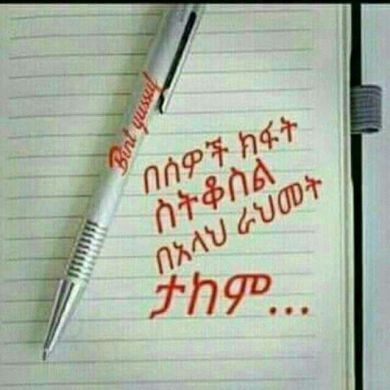 Bint yussuf
በሰዎች ክፋት
ስትቆስል
በአላህ ራህመት
ታከም...